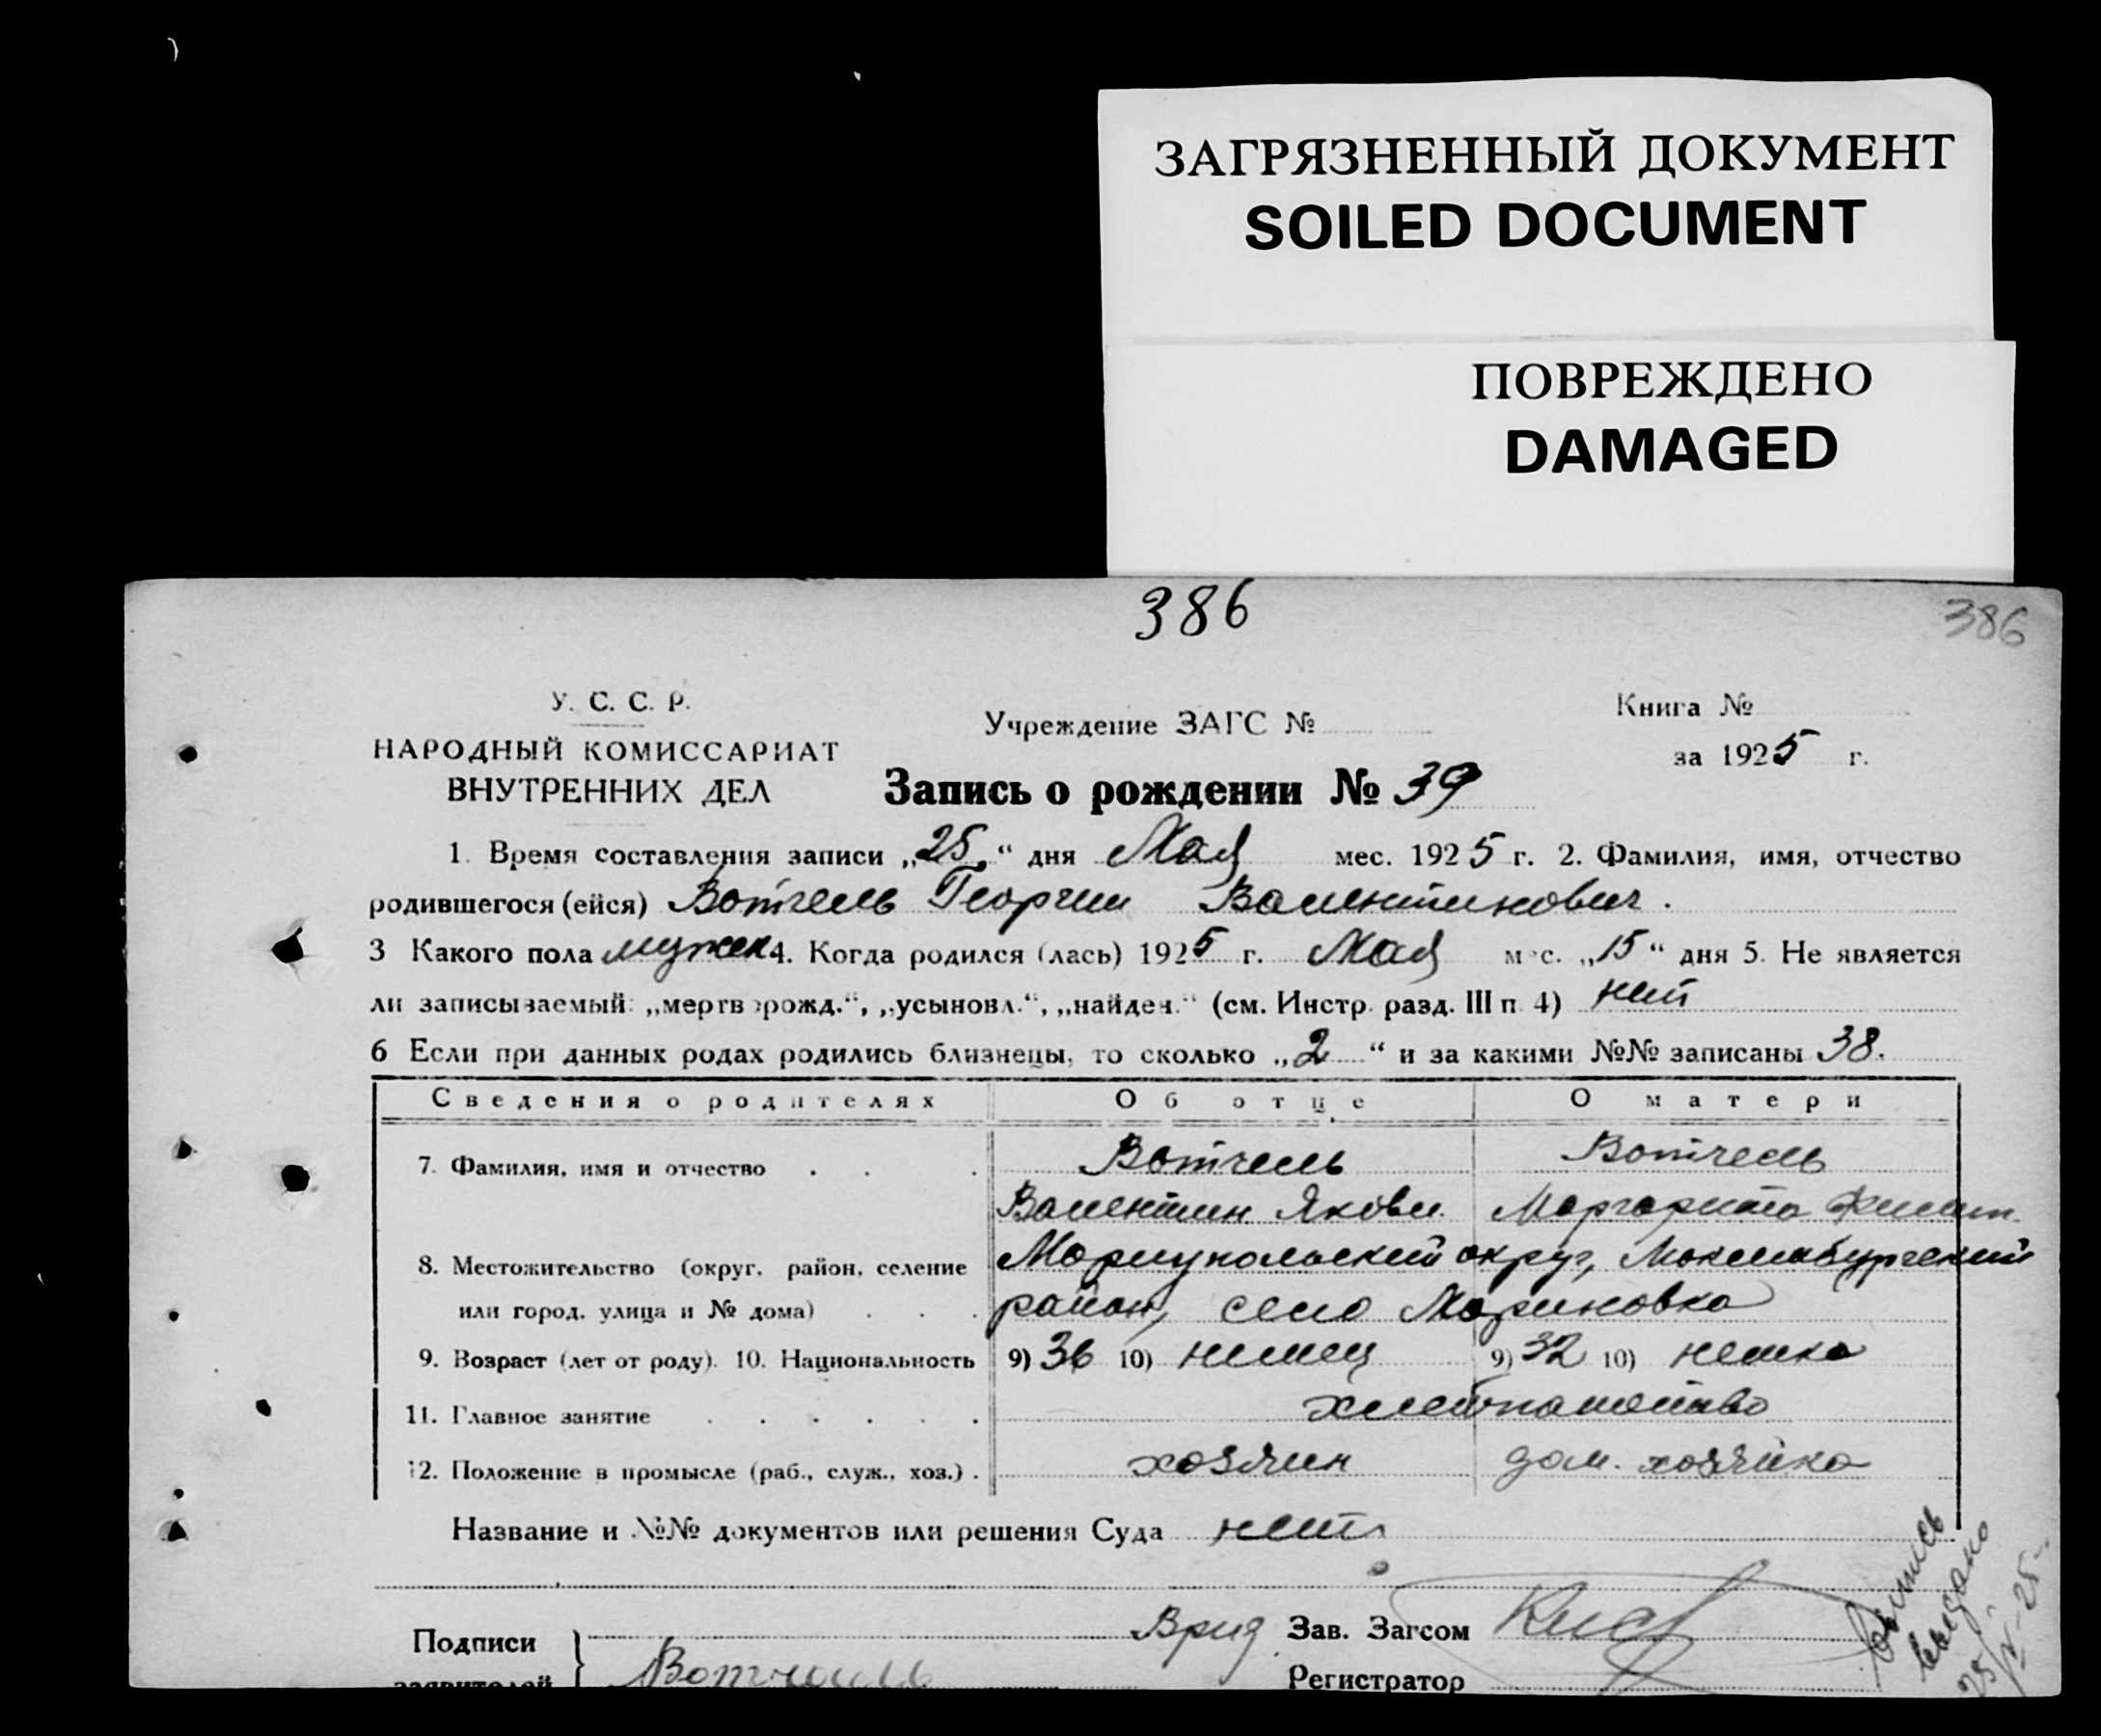 ЗАГРЯЗНЕННЫЙ ДОКУМЕНТ
SOILED DOCUMENT
ПОВРЕЖДЕНО
DAMAGED
386
386
У. С. С. Р.
НАРОДНЫЙ КОМИССАРИАТ
ВНУТРЕННИХ ДЕЛ
Учреждение ЗАГС №
Книга №
за 1925 г.
Запись о рождении № 39
1. Время составления записи „25“ дня Мая мес. 1925 г. 2. Фамилия, имя, отчество
родившегося (ейся) Вотчель Георгии Валентинович.
3 Какого пола мужск 4. Когда родился (лась) 1925 г. Мая мес. „15“ дня 5. Не является
ли записываемый: „мертворожд.“, „усыновл.“, „найден.“ (см. Инстр. разд. III п. 4) нет
6 Если при данных родах родились близнецы, то сколько „2“ и за какими №№ записаны 38.
Сведения о родителях Об отце О матери
7. Фамилия, имя и отчество . . . Вотчель Вотчель
Валентин Якови Маргарита Филип.
8. Местожительство (округ, район, селение Мариупольский округ,
или город, улица и № дома) . . . район, село Мариновка
9. Возраст (лет от роду). 10. Национальность 9) 36 10) немец 9) 32 10) немка
11. Главное занятие . . . . . . хлебопашество
12. Положение в промысле (раб., служ., хоз.) . хозяин дом. хозяйка
Название и №№ документов или решения Суда нет
Подписи Врид Зав. Загсом
заявителей Вотчель Регистратор
выпись
выдано